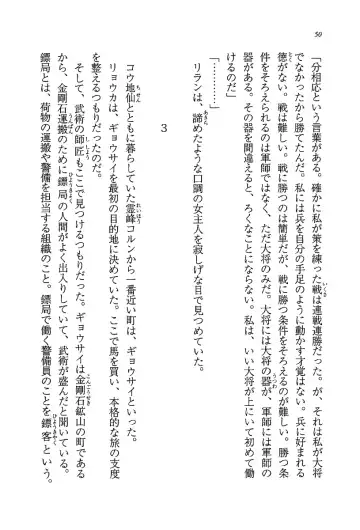 50
「分相応という言葉がある。確かに私が策を練った戦は連戦連勝だった。が、それは私が大将
でなかったから勝てたんだ。私には兵を自分の手足のように動かす才覚はない。兵に好まれる
徳がない。戦は難しい。戦に勝つのは簡単だが、戦に勝つ条件をそろえるのが難しい。勝つ条
件をそろえられるのは軍師ではなく、ただ大将のみだ。大将には大将の器が、軍師には軍師の
器がある。その器を間違えると、ろくなことにならない。私は、いい大将が上にいて初めて働
けるのだ」
「………」
リランは、諦めたような口調の女主人を寂しげな目で見つめていた。
3
コウ地仙とともに暮らしていた霊峰コルンから一番近い町は、ギョウサイといった。
リョウカは、ギョウサイを最初の目的地に決めていた。ここで馬を買い、本格的な旅の支度
を整えるつもりだったのだ。
そして、武術の師匠もここで見つけるつもりだった。ギョウサイは金剛石鉱山の町である
から、金剛石運搬のために鏢局の人間がよく出入りしていて、武術が盛んだと聞いている。
鏢局とは、荷物の運搬や警備を担当する組織のこと。鏢局で働く警備員のことを鏢客という。